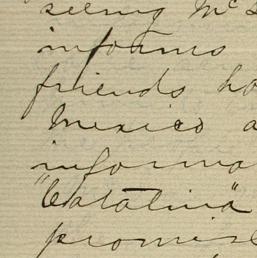 seeing Mc
informs
friends ho
Mexico a
informa
"Catalina"
promise